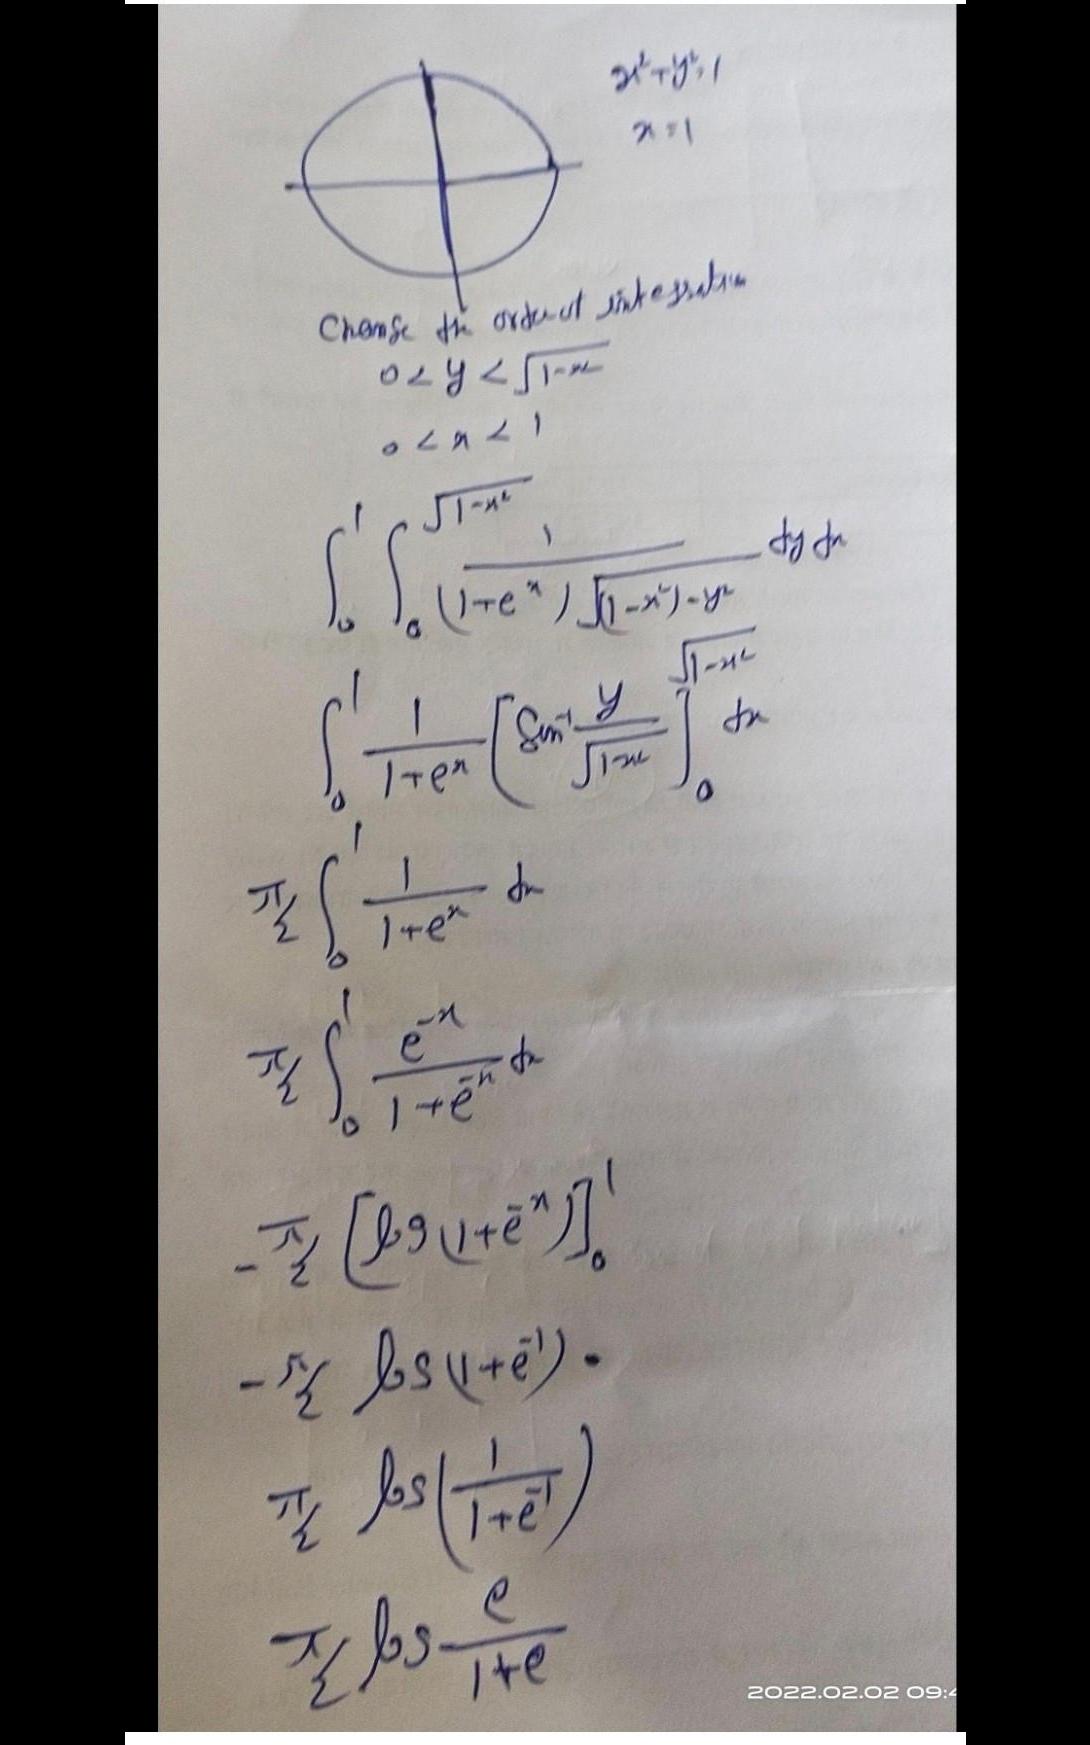 x²+y²=1
x=1
Change the order of integration
0 < y < √(1-x²)
0 < x < 1
∫₀¹ ∫₀^√(1-x²) 1/((1+eˣ) √((1-x²)-y²)) dy dx
∫₀¹ 1/(1+eˣ) [sin⁻¹ y/√(1-x²)]₀^√(1-x²) dx
π/2 ∫₀¹ 1/(1+eˣ) dx
π/2 ∫₀¹ e⁻ˣ/(1+e⁻ˣ) dx
-π/2 [log(1+e⁻ˣ)]₀¹
-π/2 log(1+e⁻¹)
π/2 log(1/(1+e⁻¹))
π/2 log e/(1+e)
2022.02.02 09:4